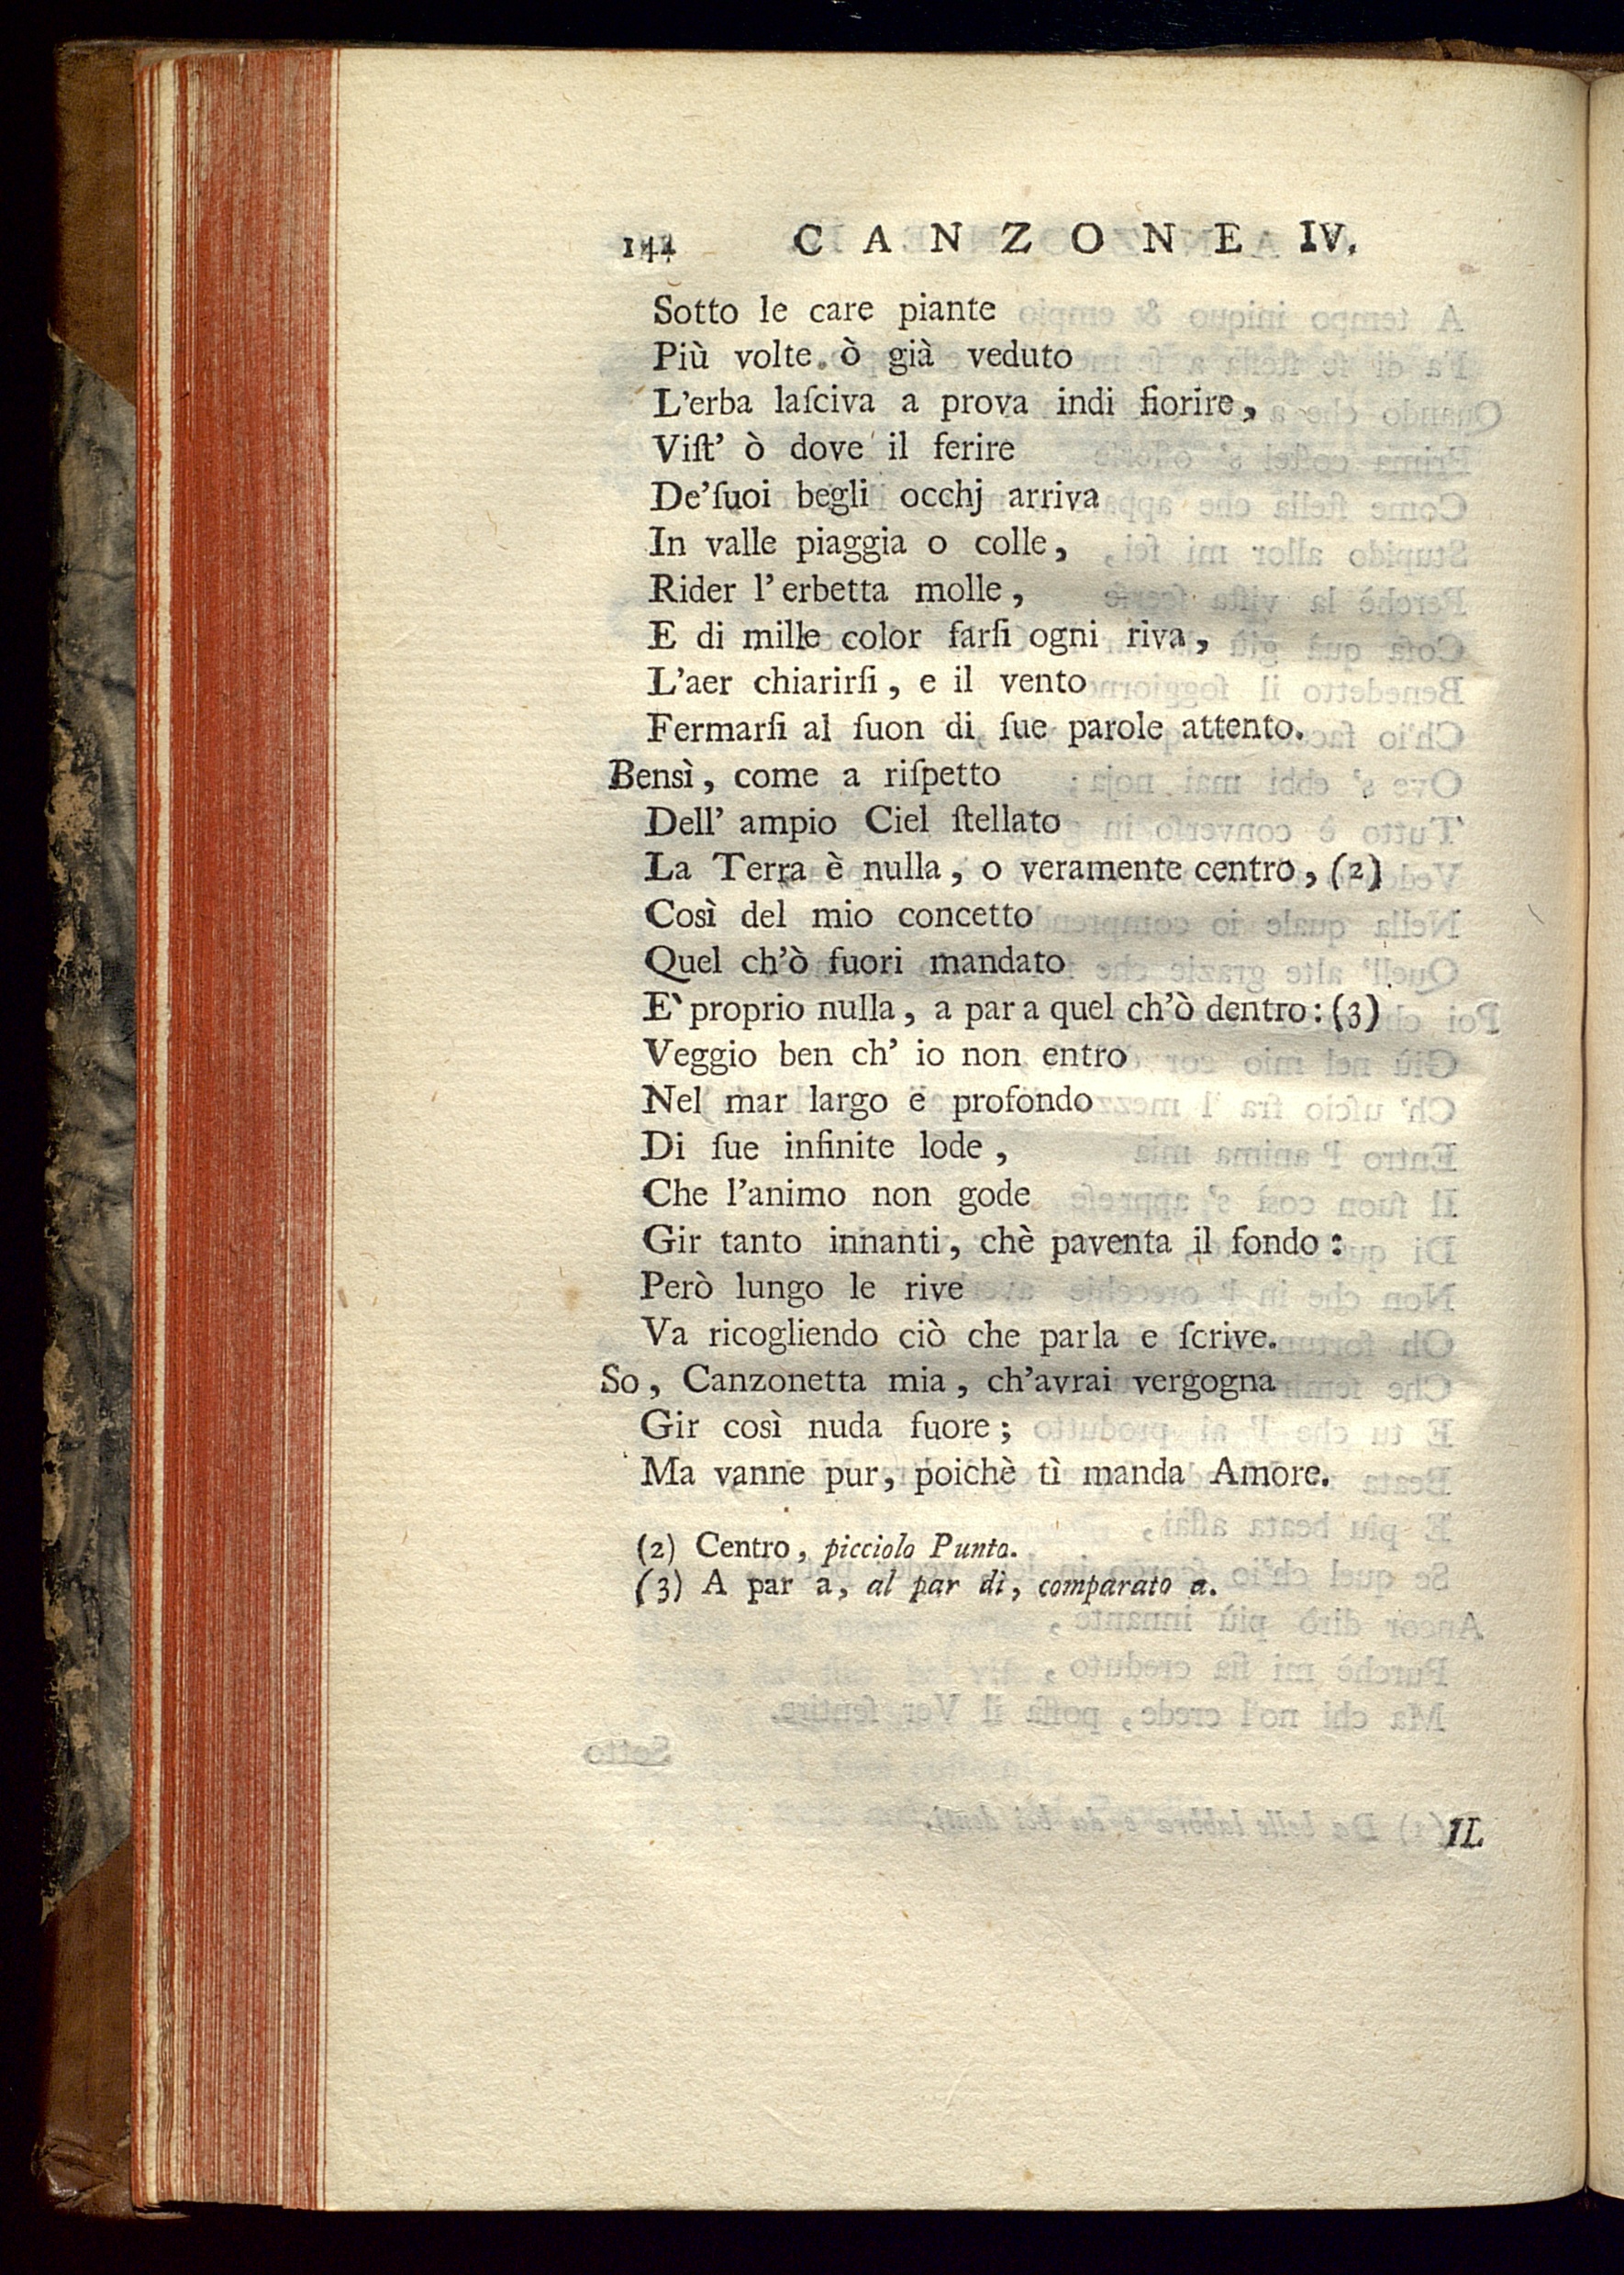 144 CANZONE IV.
Sotto le care piante
Più volte ò già veduto
L'erba laſciva a prova indi fiorire,
Viſt' ò dove il ferire
De'ſuoi begli occhj arriva
In valle piaggia o colle,
Rider l'erbetta molle,
E di mille color farſi ogni riva,
L'aer chiarirſi, e il vento
Fermarſi al ſuon di ſue parole attento.
Bensì, come a riſpetto
Dell' ampio Ciel ſtellato
La Terra è nulla, o veramente centro, (2)
Così del mio concetto
Quel ch'ò fuori mandato
E' proprio nulla, a par a quel ch'ò dentro: (3)
Veggio ben ch' io non entro
Nel mar largo e profondo
Di ſue infinite lode,
Che l'animo non gode
Gir tanto innanti, chè paventa il fondo:
Però lungo le rive
Va ricogliendo ciò che parla e ſcrive.
So, Canzonetta mia, ch'avrai vergogna
Gir così nuda fuore;
Ma vanne pur, poichè tì manda Amore.
(2) Centro, picciolo Punto.
(3) A par a, al par di, comparato a.
IL